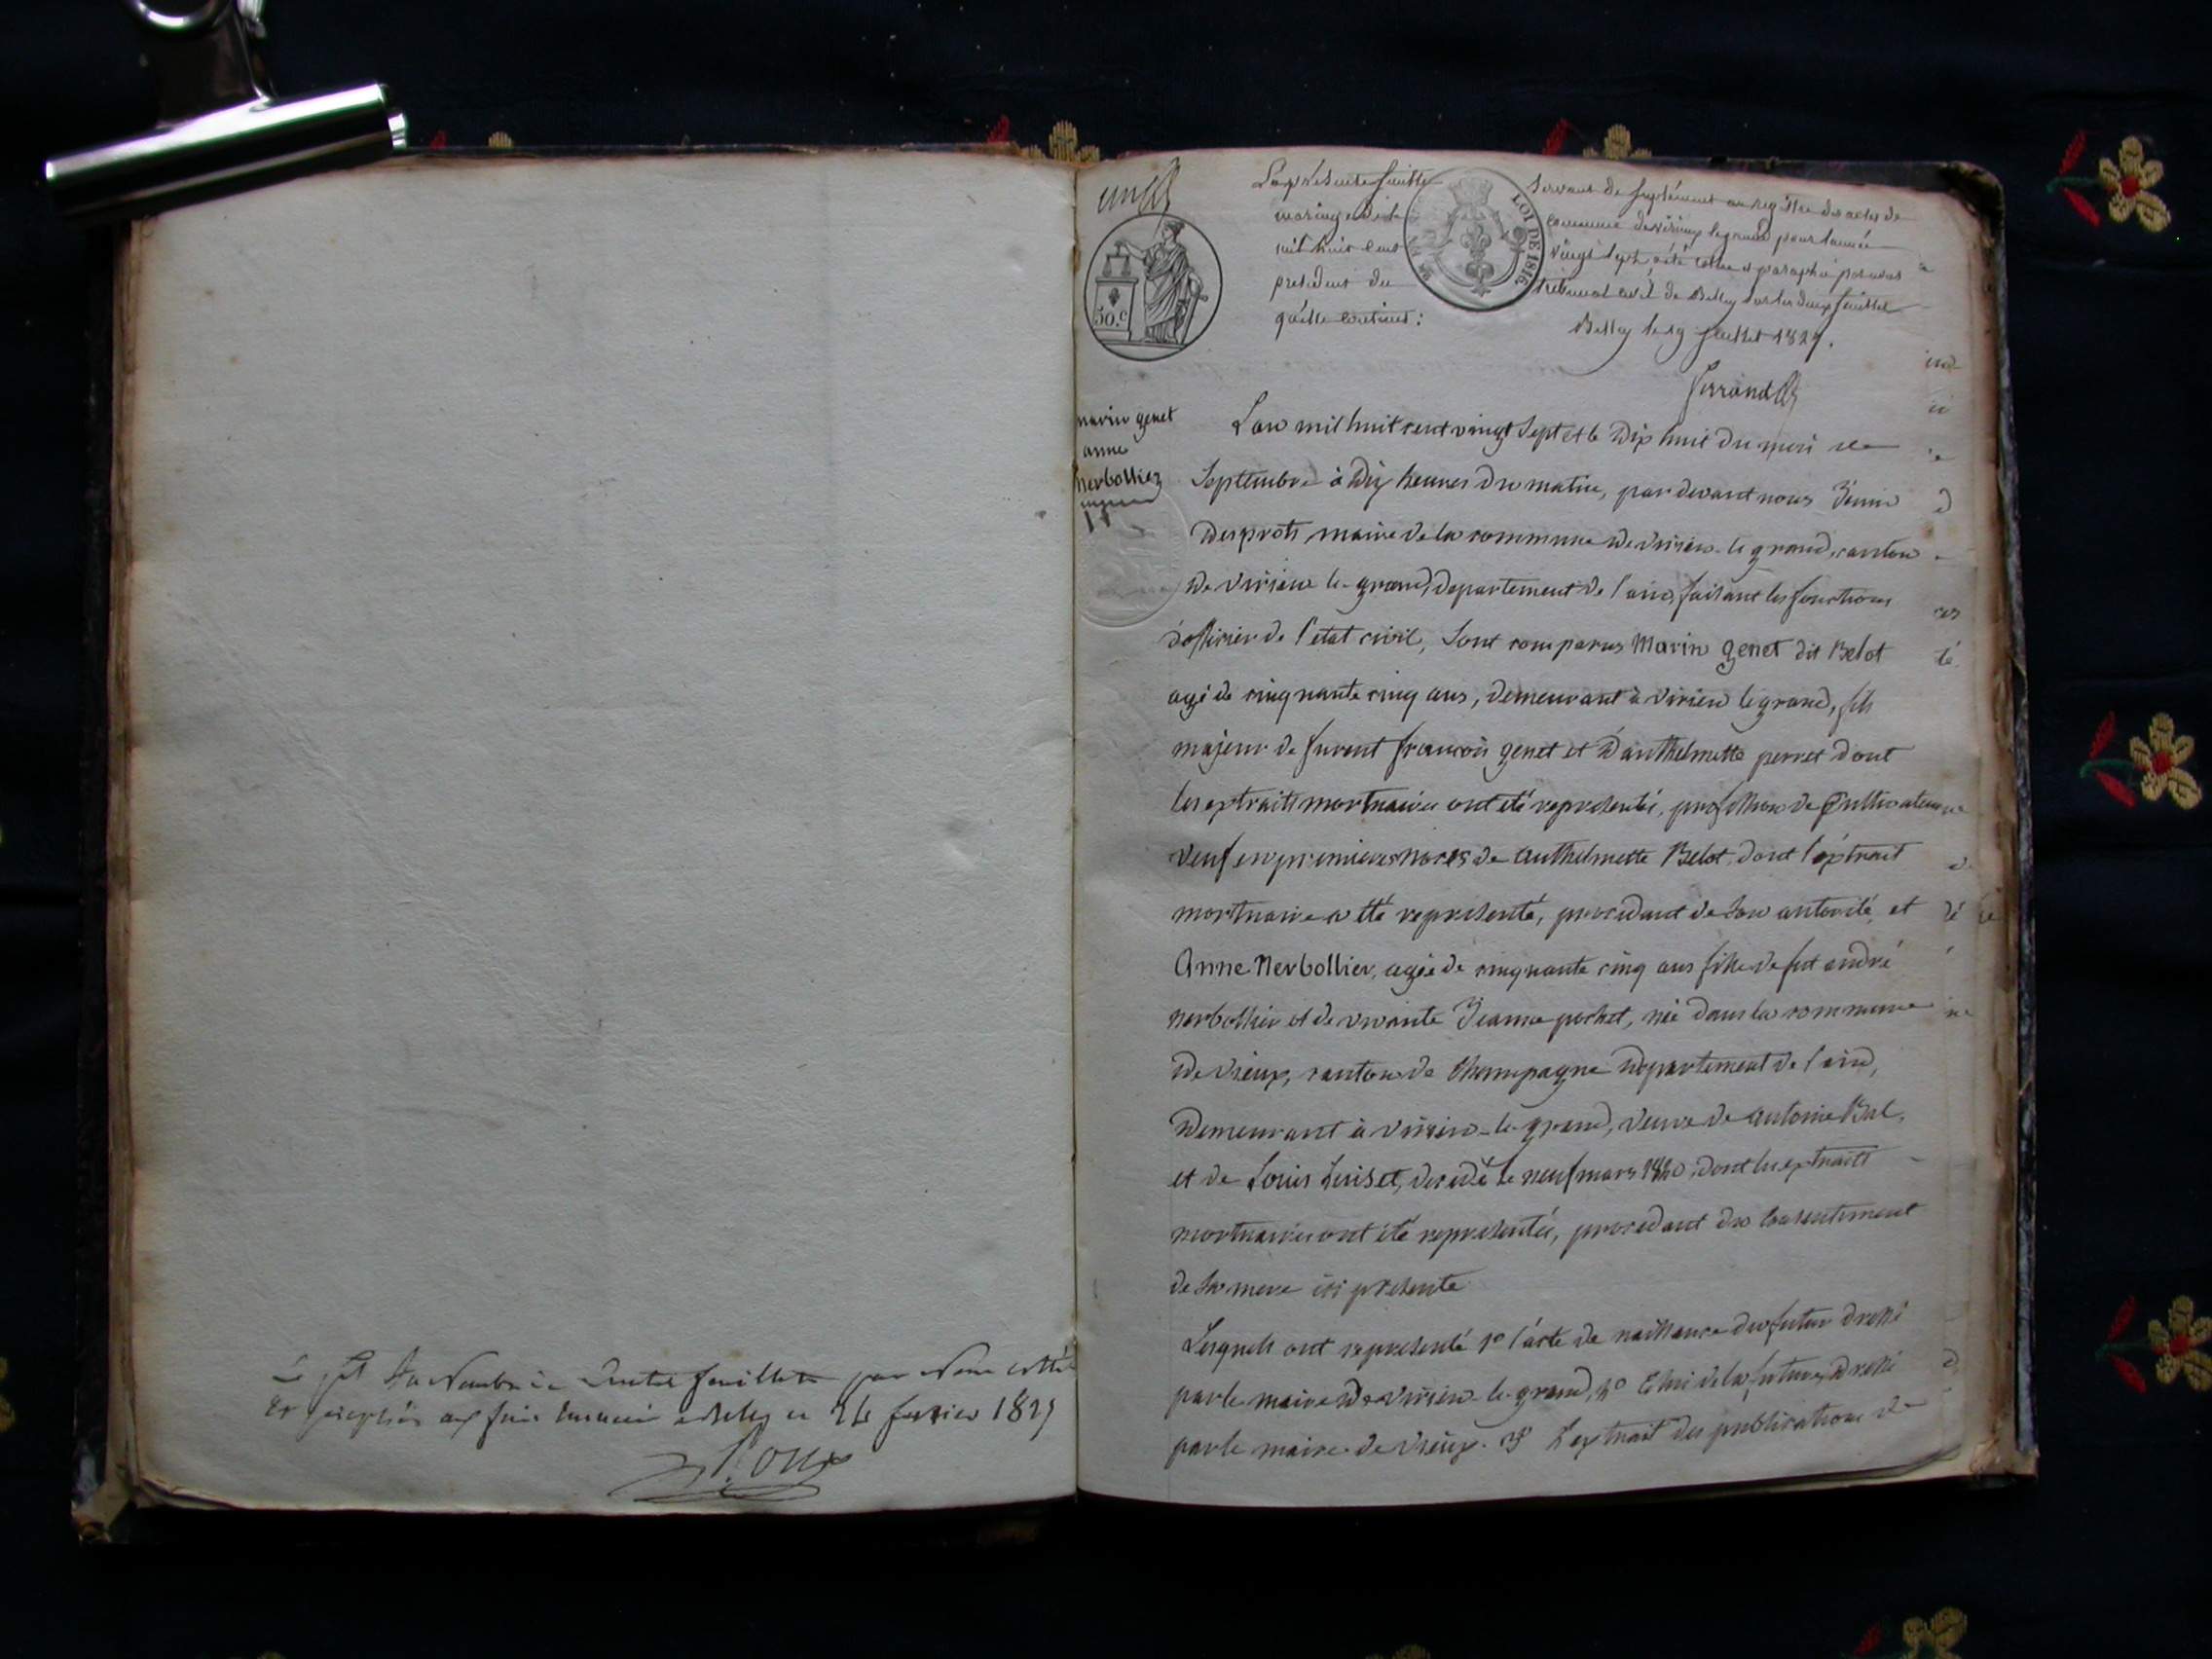 feuillets par Nous cotté
24 février 1827
un
50.c
LOI DE 1816
La présente feuille servant de suplément au registre des actes de
mariage de la commune de virieux le grand pour l'année
mil huit cent vingt sept a été cottée et paraphée par nous
président du tribunal civil de Belley sur les deux feuillets
qu'elle contient :
Belley le 19 juillet 1827.
ferrand
marin genet
anne
nerbollier
L'an mil huit cent vingt sept et le dix huit du mois de
Septembre à dix heures du matin, par devant nous
maire de la commune de virieu-le grand, canton
de virieu le-grand, département de l'ain, faisant les fonctions
d'officier de l'etat civil, sont comparus Marin genet dit Belot
agé de cinquante cinq ans, demeurant à virieu le grand, fils
majeur de furent françois genet et d'anthelmette perret dont
les extraits mortuaires ont été representés, profession de Cultivateur
veuf en premieres noces de anthelmette Belot, dont l'extrait
mortuaire a été representé, procedant de son autorité, et
Anne Nerbollier, agée de cinquante cinq ans fille de fut andré
nerbollier et de vivante Jeanne pochet, née dans la commune
de vieux, canton de Champagne département de l'ain,
demeurant à virieu-le-grand, veuve de antoine
et de Louis decedé le neuf mars dont les extraits
mortuaires ont été representés, procedant du consentement
de sa mere ici presente
Lesquels ont representé 1° l'acte de naissance du futur dressé
par le maire de virieu-le-grand, 2° Celui de la future, dressé
par le maire de vieux. 3° L'extrait des publications de